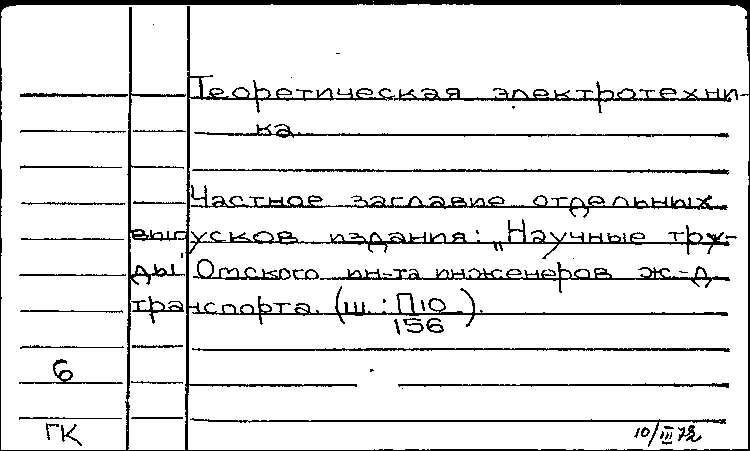 Теоретическая электротехни-
ка.
Частное заглавие отдельных
выпусков издания: „Научные тру-
ды" Омского ин-та инженеров ж.-д.
транспорта. (ш.: П10
156).
6
ГК
10/III 72